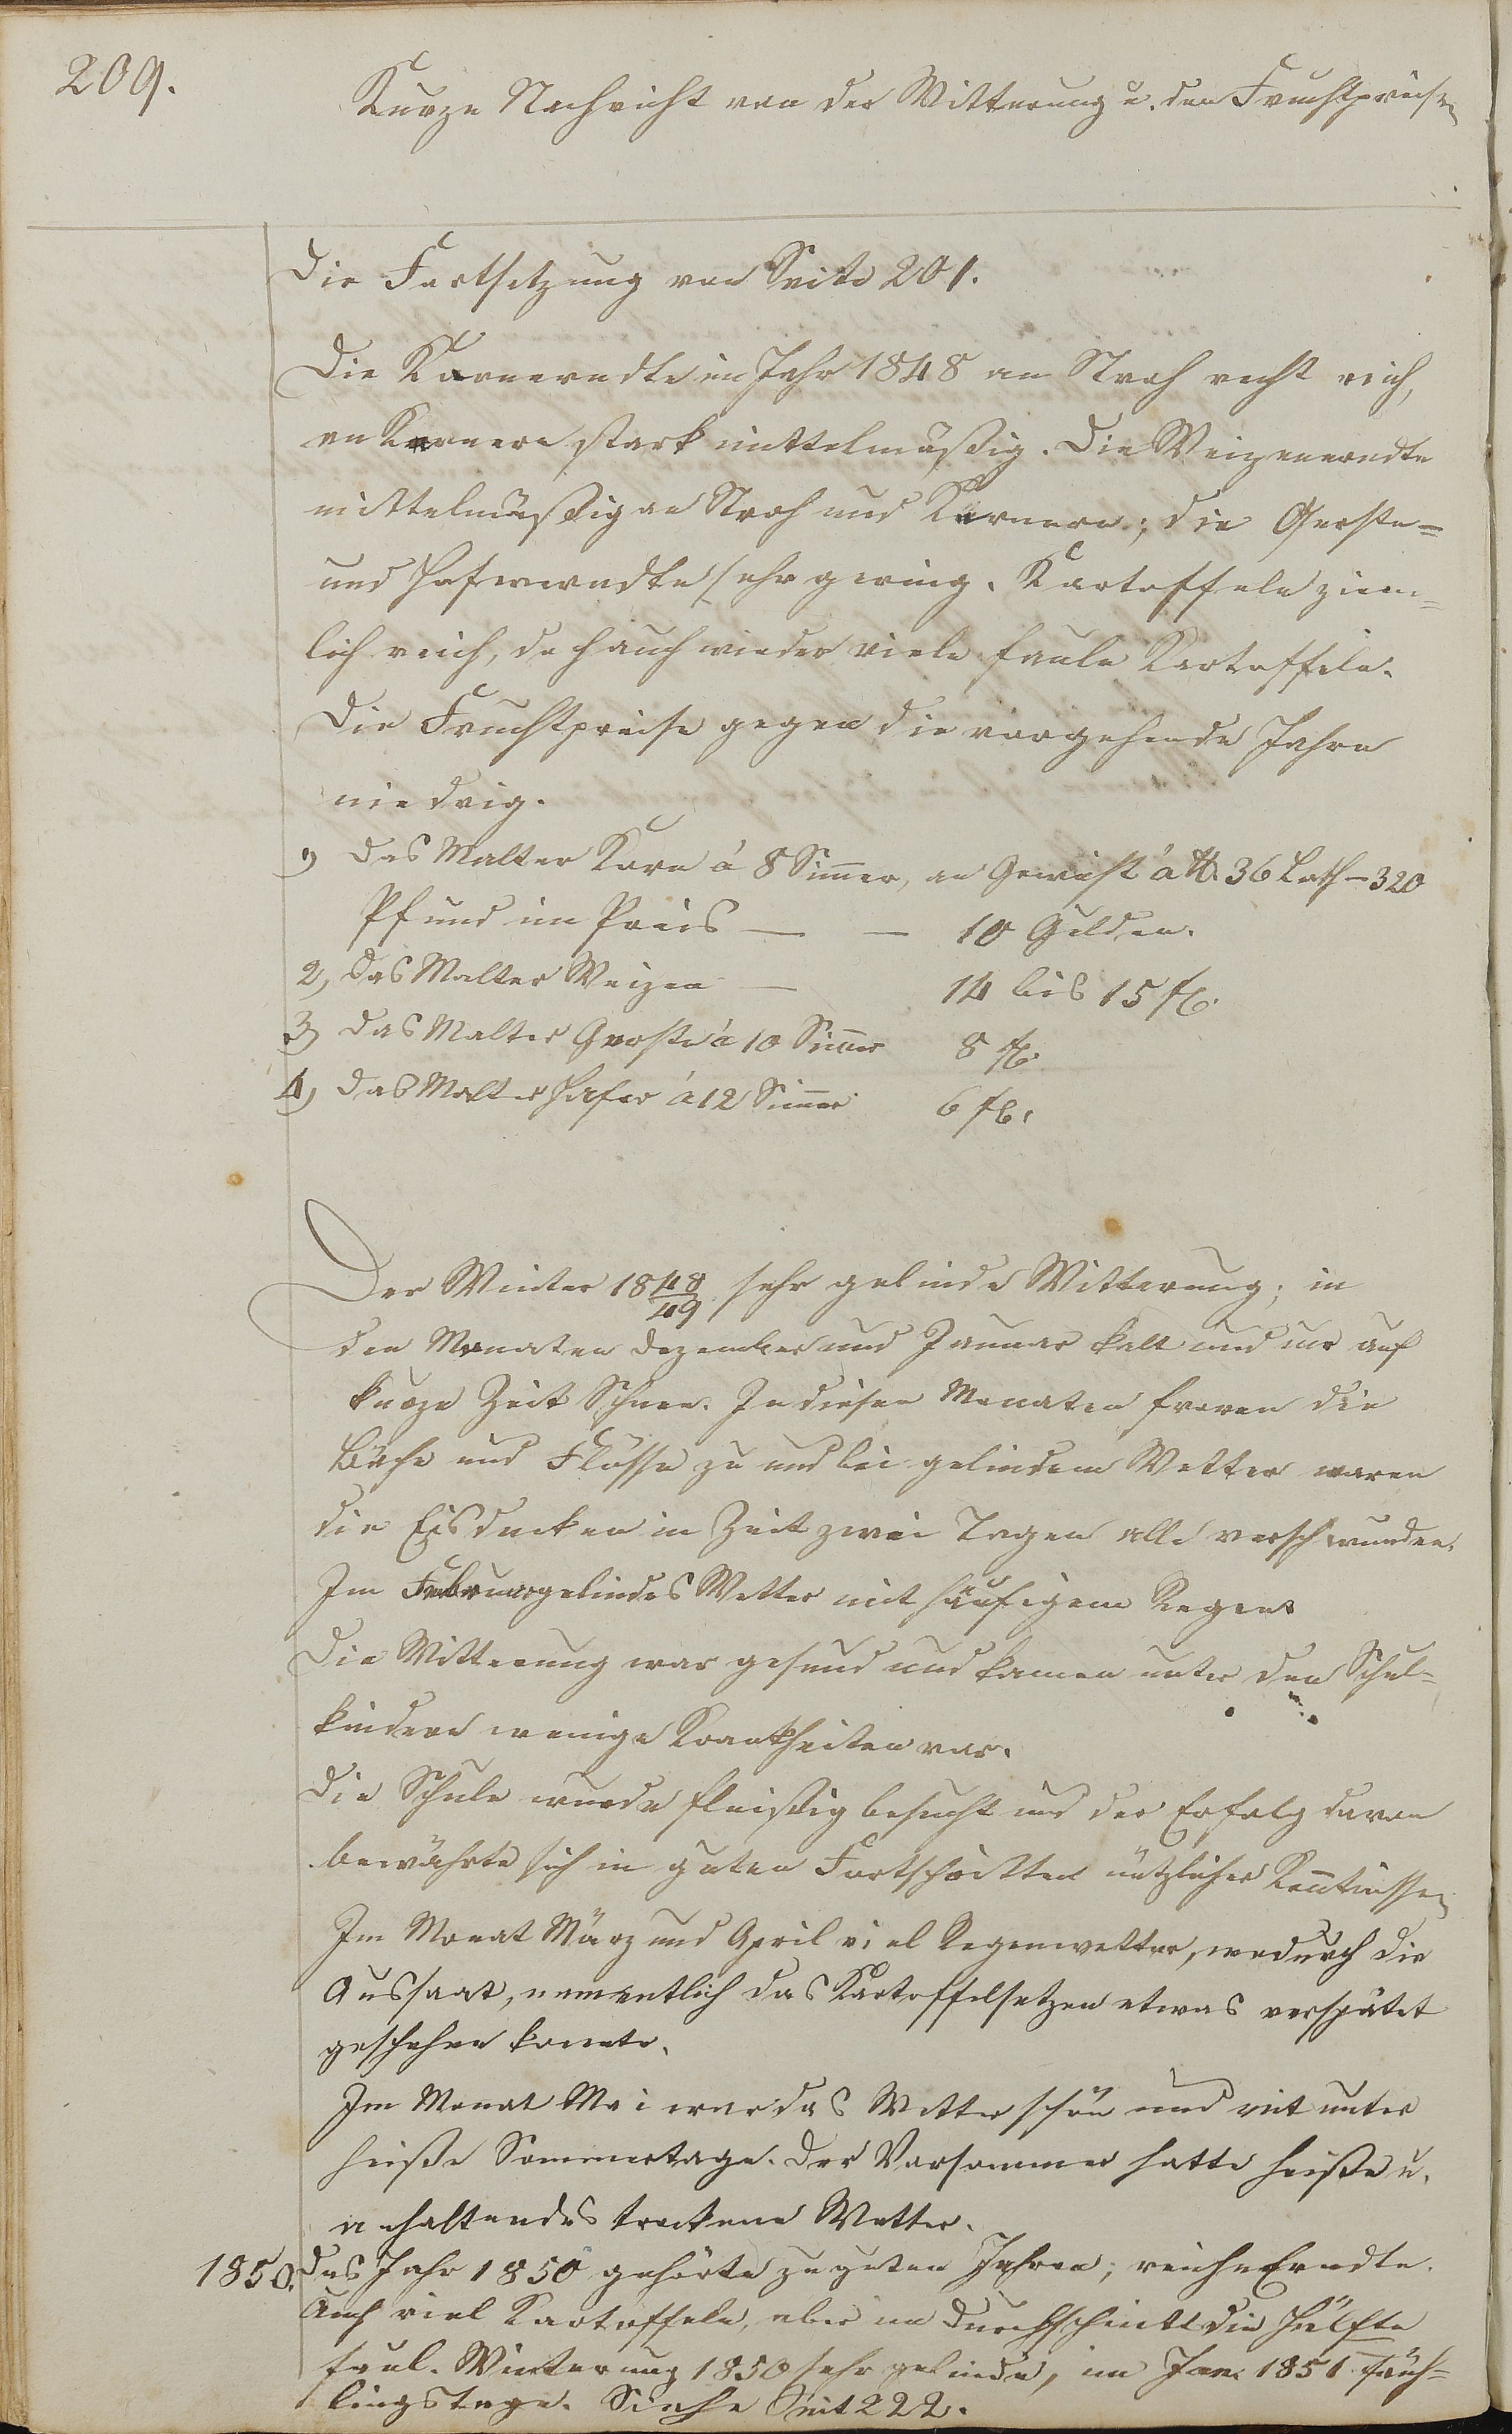 209.
Kurze Nachricht von der Witterung u. den Fruchtpreisen
Die Fortsetzung von Seite 201.
Die Kornerndte im Jahr 1848 an Stroh recht reich,
an Körnern stark mittelmäßig. Die Weizenerndte
mittelmäßig an Stroh und Körnern; die Gerste-
und Hafererndte sehr gering. Kartoffeln ziem-
lich reich, doch auch wieder viele faule Kartoffeln.
Die Fruchtpreise gegen die vorgehende Jahre
niedrig.
1) Das Malter Korn á 8 Sim̄er, an Gewicht á ℔. 36 Loth - 320
Pfund im Preis — — 10 Gulden.
2, Das Malter Weizen — 14 bis 15 fl.
3, Das Malter Gerste á 10 Sim̄er 8 fl.
4, Das Malter Hafer á 12 Sim̄er 6 fl.
Der Winter 1848/49 sehr gelinde Witterung; in
den Monaten Dezember und Januar kalt und nur auf
kurze Zeit Schnee. In diesen Monaten froren die
Bäche und Flüsse zu und bei gelindem Wetter waren
die Eisdecken in Zeit zwei Tagen alle verschwunden.
Im Februar gelindes Wetter mit häufigem Regen.
Die Witterung war gesund und kamen unter den Schul-
kindern wenige Krankheiten vor.
Die Schule wurde fleißig besucht und der Erfolg davon
bewährte sich in guten Fortschritten nützlicher Ken̄tnissen
Im Monat März und April viel Regenwetter, wodurch die
Aussaat, namentlich das Kartoffelsetzen etwas verspätet
geschehen konnte.
Im Monat Mai war das Wetter schön und mit unter
heiße Sommertage. Der Vorsommer hatte heiße u.
anhaltendes trockene Wetter.
1850. Das Jahr 1850 gehörte zu guten Jahren; reiche Erndte.
Auch viel Kartoffeln, aber im Durchschnitt die Hälfte
faul. Winterung 1850 sehr gelinde, im Jan. 1851 früh-
lingstage. Siehe Seit 222.